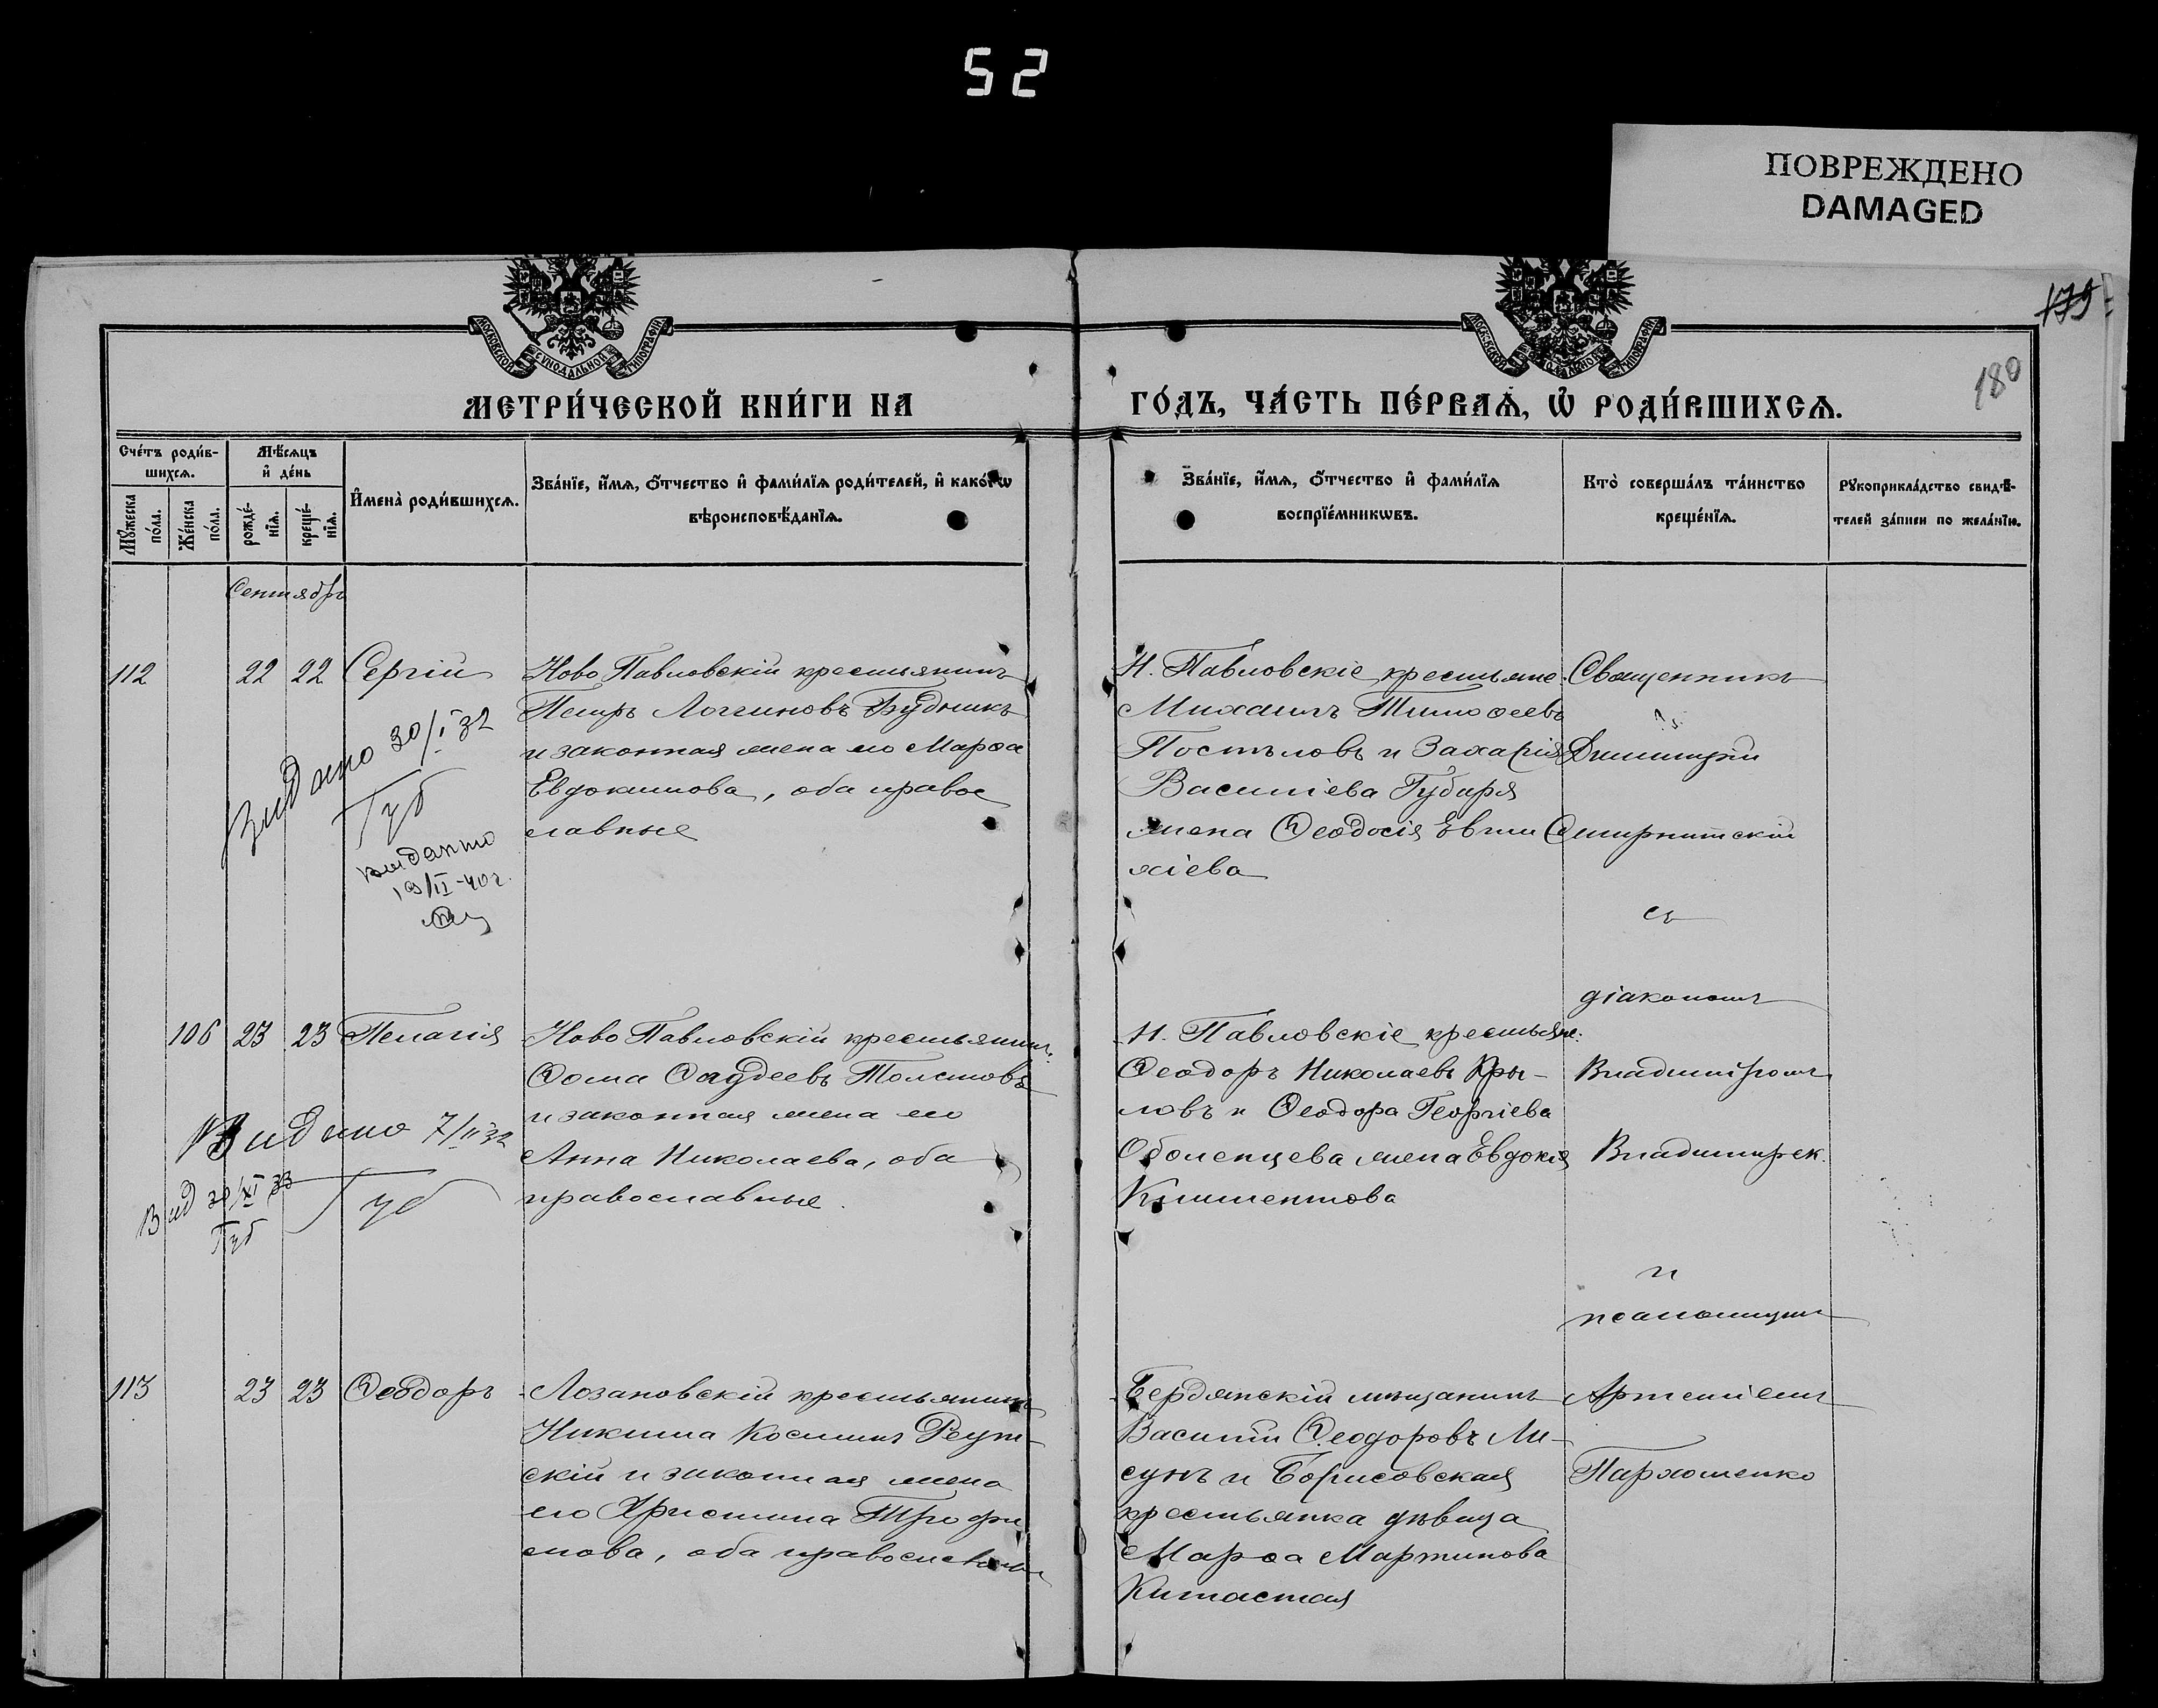 52
ПОВРЕЖДЕНО
DAMAGED
179
180
МОСКОВСКОЙ СУНОДАЛЬНОЙ ТИПОГРАФІИ
МОСКОВСКОЙ СУНОДАЛЬНОЙ ТИПОГРАФІИ
МЕТРИ́ЧЕСКОЙ КНИ́ГИ НА
ГО́ДЪ, ЧА́СТЬ ПЕ́РВАѦ, Ѡ҆ РОДИ́ВШИХСѦ.
Сче́тъ роди́в-
шихсѧ.
Мѣ́сѧцъ
и҆ де́нь
Мꙋ́жеска
по́ла.
Же́нска
по́ла.
рожде́-
нїѧ.
креще́-
нїѧ.
И҆мена̀ роди́вшихсѧ.
Зва́нїе, и҆́мѧ, ѻ҆́тчество и҆ фами́лїѧ роди́телей, и҆ како́гѡ
вѣроисповѣ́данїѧ.
Зва́нїе, и҆́мѧ, ѻ҆́тчество и҆ фами́лїѧ
воспрїе́мникѡвъ.
Кто̀ соверша́лъ та́инство
креще́нїѧ.
Рꙋкоприкла́дство свидѣ́-
телей за́писи по жела́нїю.
Сентябрь
112 22 22 Сергій
Ново Павловскій крестьянинъ
Петръ Логгиновъ Будникъ
и законная жена его Марѳа
Евдокимова, оба право
славные
Видано 30/I 32
Губ
виданно
19/II-40г.
Н. Павловскіе крестьяне:
Михаилъ Тимоѳеевъ
Постъловъ и Захарія
Василіева Губаря
жена Ѳеодосія Евти
хіева
Священникъ
Димитрій
Смирнитскій
съ
діакономъ
Владиміромъ
Владимирск.
и
псаломщик
Артеміемъ
Пархоменко
106 23 23 Пелагія
Ново Павловскій крестьянинъ
Ѳома Ѳаддеевъ Толстовъ
и законная жена его
Анна Николаева, оба
православные.
Видано 7/II 32
Губ
Вид 30/XI 33
Губ
Н. Павловскіе крестьяне:
Ѳеодоръ Николаевъ Кры-
ловъ и Ѳеодора Георгіева
Оболенцева жена Евдокія
Климентова
113 23 23 Ѳеодоръ
Лозановскій крестьянинъ
Никита Косминъ Реут-
скій и законная жена
его Христина Трофи
мова, оба православные
Бердянскій мѣщанинъ
Василій Ѳеодоровъ Ли-
сунъ и Борисовская
крестьянка дѣвица
Марѳа Мартинова
Китастая